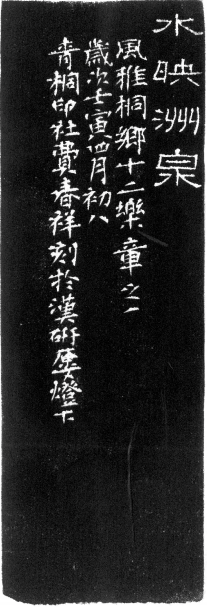 水映洲泉
風雅桐鄉十二樂章之一
歲次壬寅四月初八
青桐印社費春祥刻於漢硏屢燈下